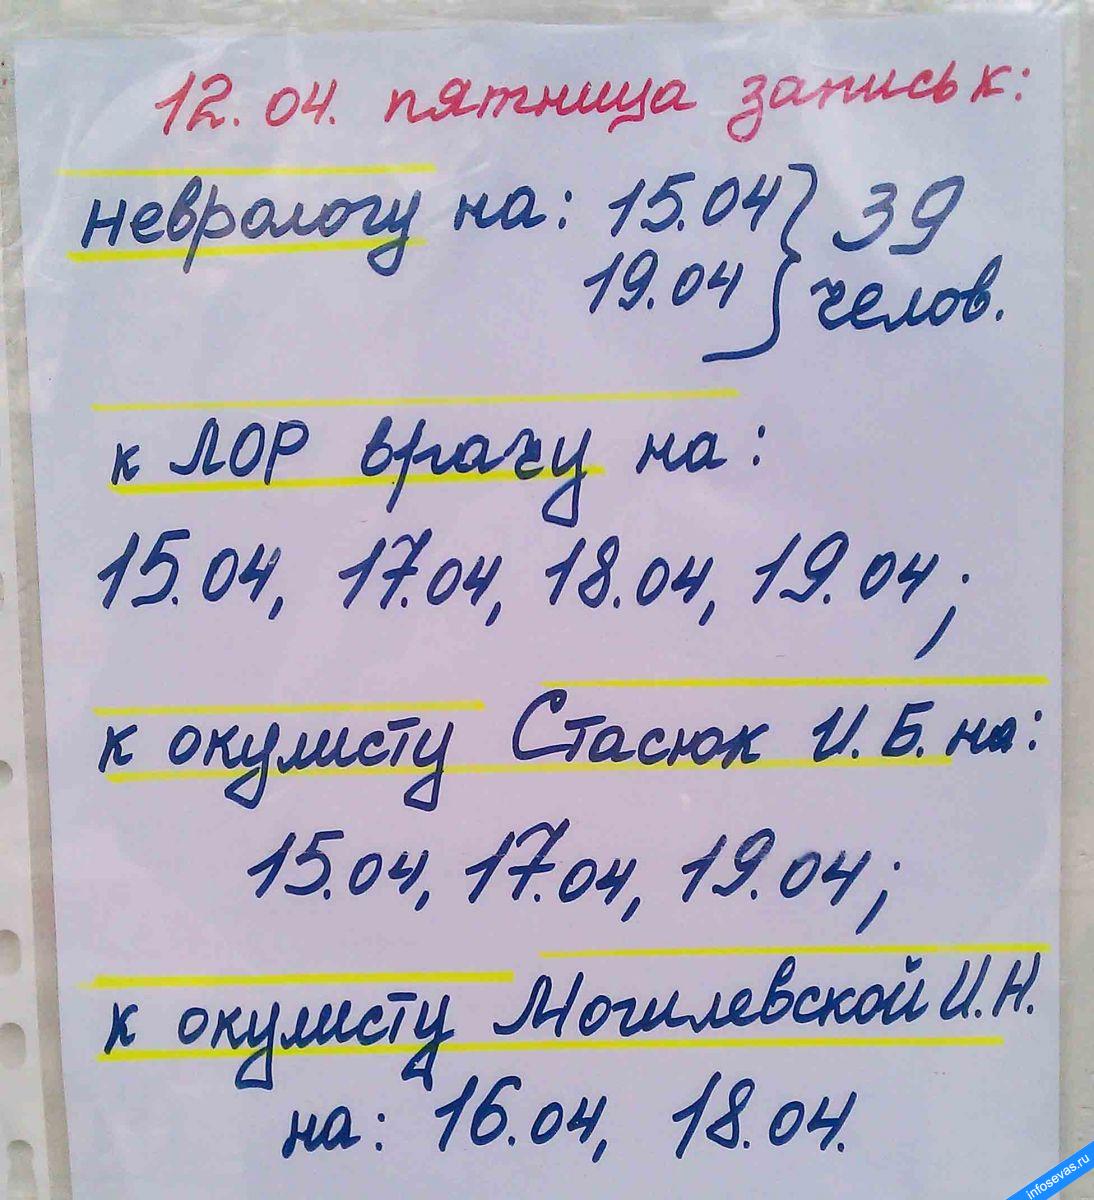 12.04. пятница запись к:
неврологу на: 15.04 } 39
19.04 } челов.
к ЛОР врачу на:
15.04, 17.04, 18.04, 19.04;
к окулисту Стасюк И.Б. на:
15.04, 17.04, 19.04;
к окулисту Могилевской И.Н.
на: 16.04, 18.04.
infosevas.ru